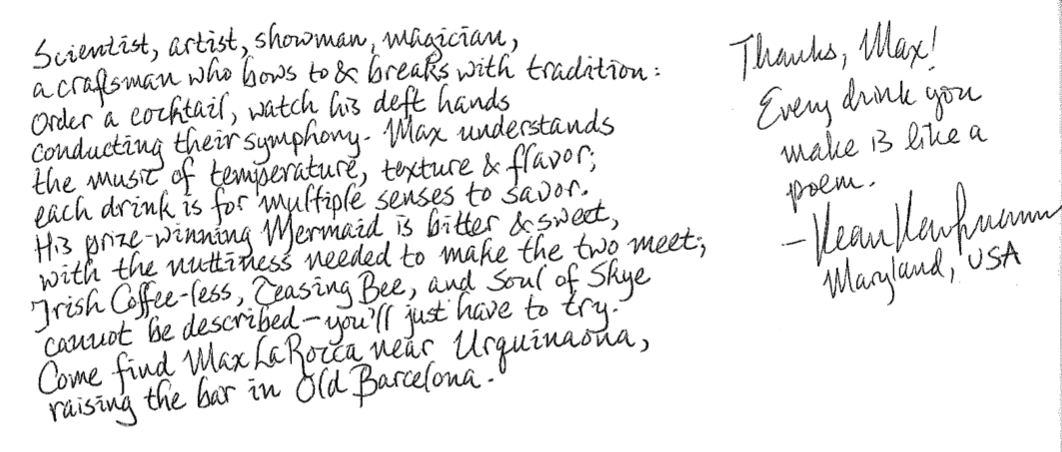 Scientist, artist, showman, magician,
a craftsman who bows to & breaks with tradition:
Order a cocktail, watch his deft hands
conducting their symphony. Max understands
the music of temperature, texture & flavor;
each drink is for multiple senses to savor.
His prize-winning Mermaid is bitter & sweet,
with the nuttiness needed to make the two meet;
Irish Coffee-less, Teasing Bee, and Soul of Skye
cannot be described—you'll just have to try.
Come find Max LaRocca near Urquinaona,
raising the bar in Old Barcelona.
Thanks, Max!
Every drink you
make is like a
poem.
Maryland, USA